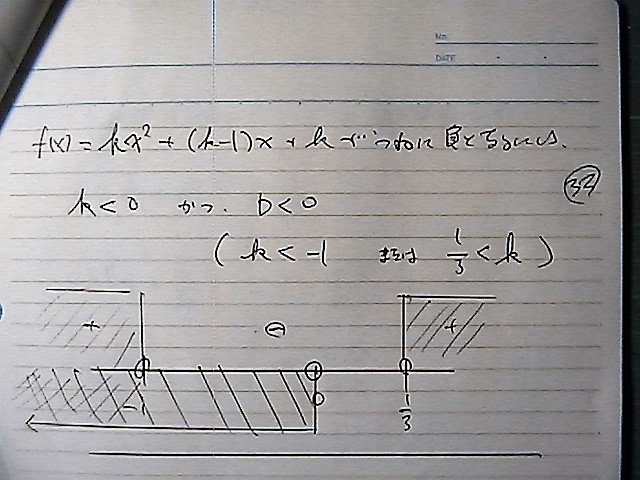 No.
DATE
f(x) = kx² + (k-1)x + k がつねに負となるには、
34
k < 0 かつ D < 0
( k < -1 または 1/3 < k )
+ ⊖ +
-1 0 1/3